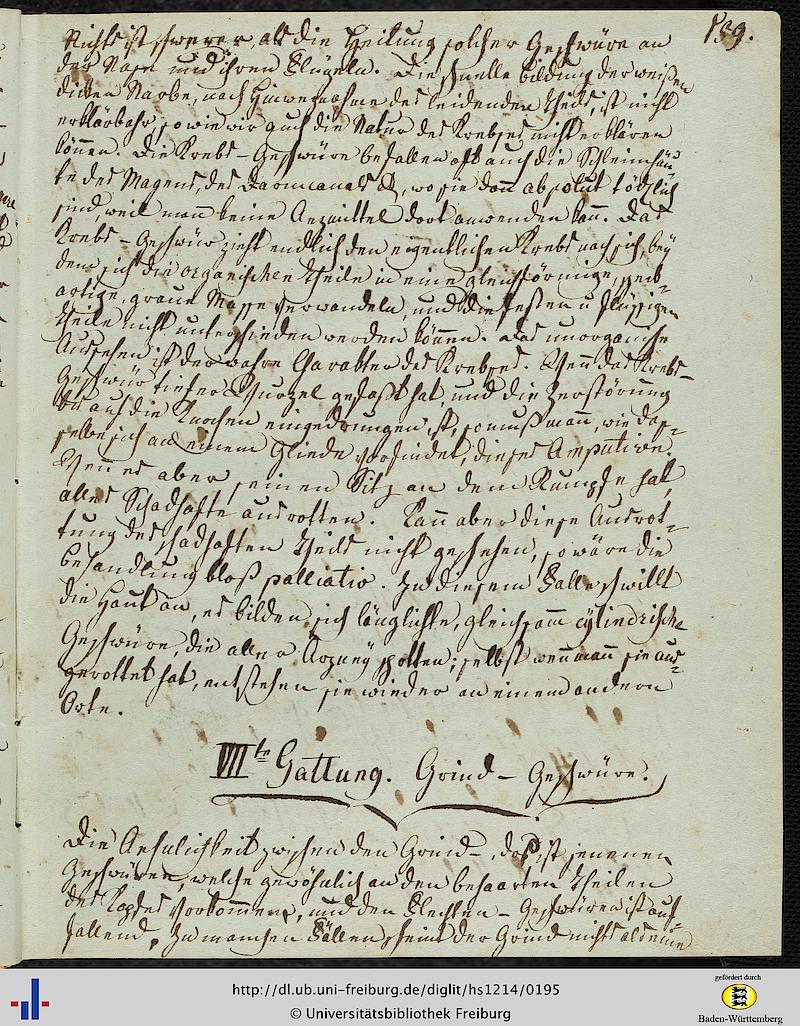 189.
Nichts ist schwerer, als die Heilung solcher Geschwüre an
der Nase und ihren Flügeln. Die schnelle bildung der weißen
dicken Narbe, nach Hinwegnahme des leidenden Theils, ist nicht
erklärbahr, so wie wir auch die Natur des Krebses nicht erklären
können. Die Krebs-Geschwüre befallen oft auch die Schleimhäu-
te des Magens, des Darmcanals &, wo sie dan̄ absolut tödtlich
sind, weil man keine Arzmittel dort anwenden kan̄. Das
Krebs-Geschwür zieht endlich den eigentlichen Krebs nach sich, bey
dem sich die organischen Theile in eine gleichförmige, speck-
artige, graue Masse verwandeln, und die festen u flüssigen
Theile nicht unterschieden werden können. Das unorganische
Aussehen ist der wahre Charakter des Krebses. Wen̄ das Krebs-
Geschwür tiefer Wurzel gefaßt hat, und die Zerstörung
bis auf die Knochen eingedrungen ist, so muß man, wie das-
selbe sich an einem Gliede vorfindet, dieses Amputiren.
Wen̄ es aber seinen Sitz an dem Rumpfe hat,
alles Schadhafte ausrotten. Kan̄ aber diese Ausrot-
tung des schadhaften Theils nicht geschehen, so wäre die
behandlung bloß palliativ. In diesem Falle schwillt
die Haut an, es bilden sich länglichte, gleichsam̄ cylindrische
Geschwüre, die aller Arzney spotten; selbst wen̄ man̄ sie aus-
gerottet hat, entstehen sie wieder an einem andern
Orte.
VIIte Gattung. Grind-Geschwüre.
Die Aehnlichkeit zwischen den Grind-, das ist jenenen
Geschwüren, welche gewöhnlich an den behaarten Theilen
des Kopfes vorkommen, und den Flechten-Geschwüren ist auf-
fallend. In manchen Fällen scheint der Grind nichts als eine
http://dl.ub.uni-freiburg.de/diglit/hs1214/0195
© Universitätsbibliothek Freiburg
gefördert durch
Baden-Württemberg